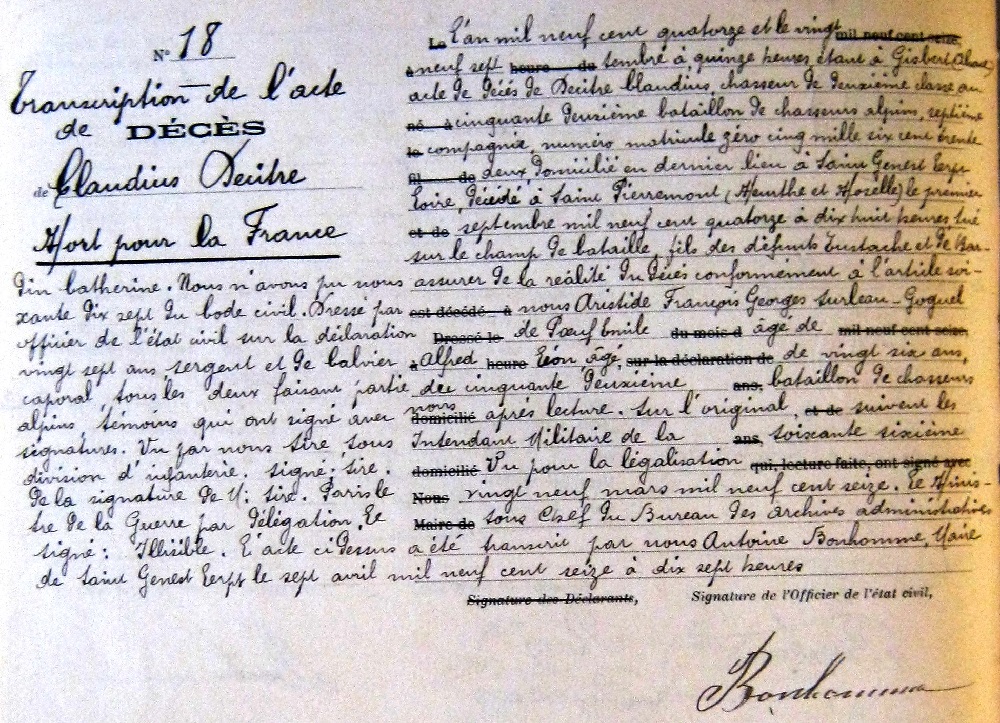 N° 18
Transcription de l'acte
de DÉCÈS
de Claudius Decitre
Mort pour la France
Le L'an mil neuf cent quatorze et le vingt mil neuf cent seize,
à neuf sept heure du tembre à quinze heures étant à Gisbert
acte de décès de Decitre Claudius, chasseur de deuxième classe au
né à cinquante deuxième bataillon de chasseurs alpins, septième
le compagnie, numéro matricule zéro cinq mille six cent trente
fil de deux domicilié en dernier lieu à Saint Genest Lerpt
Loire, décédé à Saint Pierremont (Meurthe et Moselle) le premier
et de septembre mil neuf cent quatorze à dix huit heures tué
sur le champ de bataille, fils des défunts Eustache et de Bar-
din Catherine. Nous n'avons pu nous assurer de la réalité du décès conformément à l'article soi-
xante dix sept du Code civil. Dressé par est décédé à nous Aristide François Georges Surleau-Goguel
officier de l'état civil sur la déclaration Dressé le de Pœuf Emile du mois d âgé de mil neuf cent seize
vingt sept ans sergent et de Calvier à Alfred heure Léon âgé, sur la déclaration de de vingt six ans,
caporal, tous les deux faisant partie du cinquante deuxième ans, bataillon de chasseurs
alpins témoins qui ont signé avec nous domicilié après lecture. Sur l'original, et de suivent les
signatures. Vu par nous Sire Sous Intendant Militaire de la ans, soixante sixième
division d'infanterie. Signé: Sire. domicilié Vu pour la légalisation qui, lecture faite, ont signé avec
de la signature de M. Sire. Paris le Nous vingt neuf mars mil neuf cent seize. Le Minis-
tre de la Guerre par délégation, Le Maire de Sous Chef du Bureau des archives administratives
signé: Illisible. L'acte ci dessus a été transcrit par nous Antoine Bonhomme, Maire
de Saint Genest Lerpt le sept avril mil neuf cent seize à dix sept heures
Signature des Déclarants, Signature de l'Officier de l'état civil,
Bonhomme